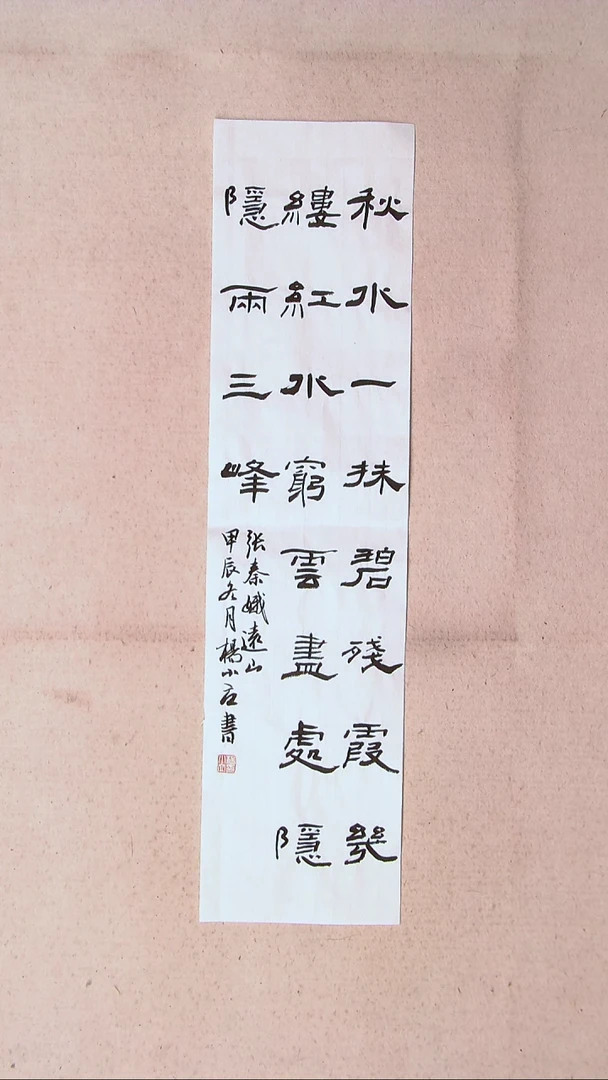 秋水一抹碧殘霞幾
縷紅水窮雲盡處隱
隱兩三峰
张秦娥遠山
甲辰冬月楊小石書